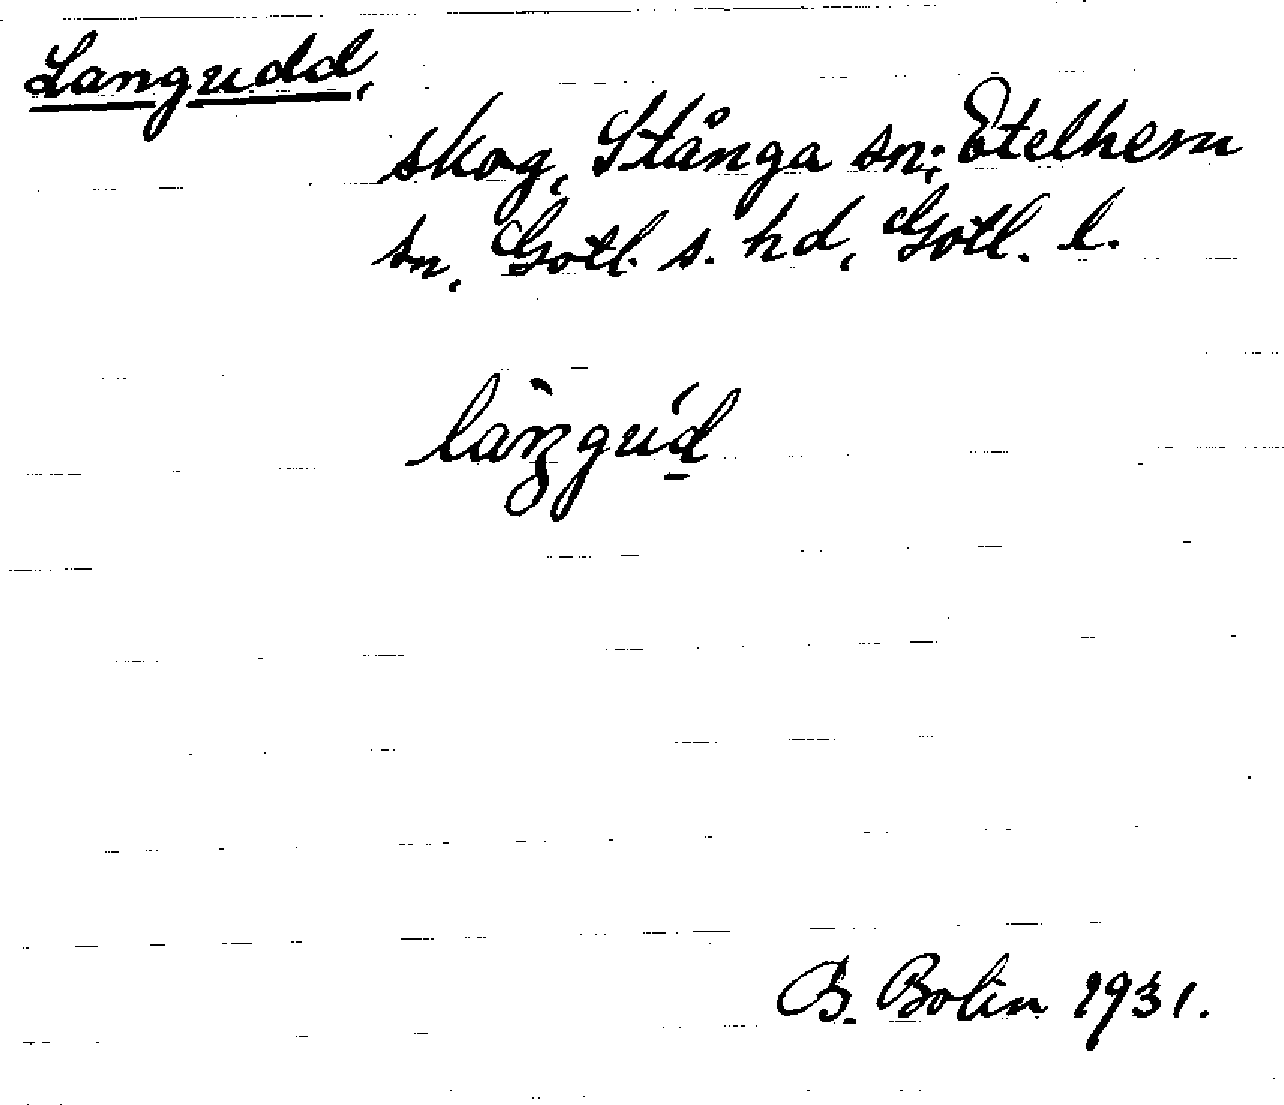 Langudd,
skog, Stånga sn; Etelhem
sn, Gotl. s. hd, Gotl. l.
B. Bolin 1931.